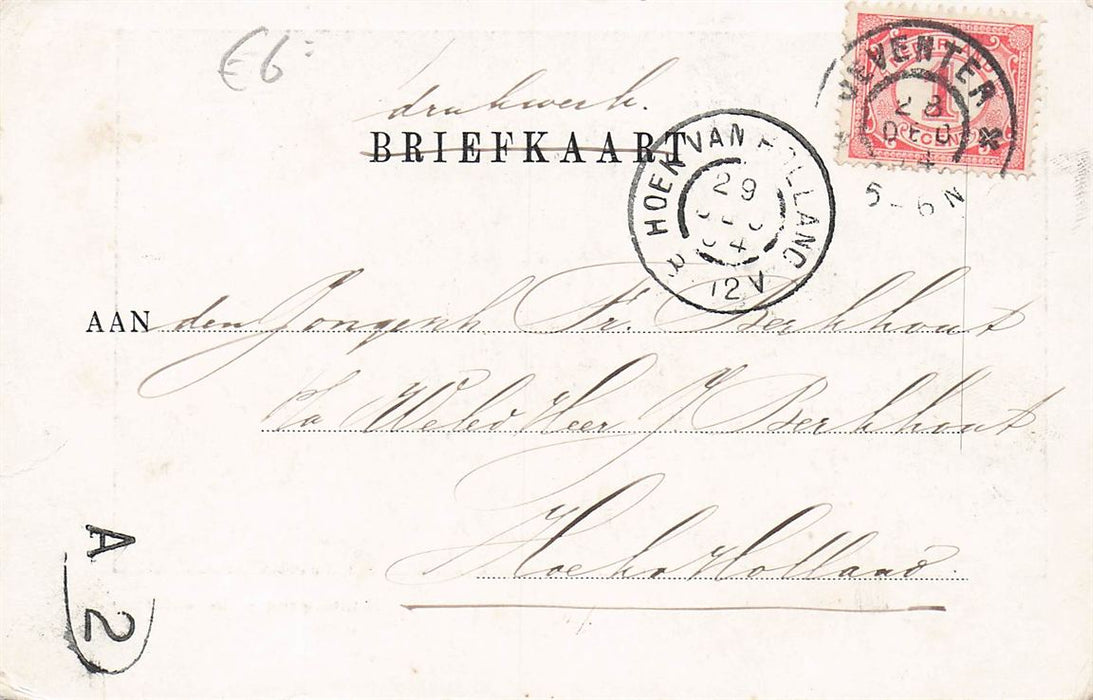 €6
drukwerk.
BRIEFKAART
DEVENTER
28
DEC
04
5-6 N
1
CENT
HOEK VAN HOLLAND
29
DEC
04
12 V
AAN den Jongeh Fr. Berkhout
p/a WelEd Heer J Berkhout
Hoek v Holland.
A 2